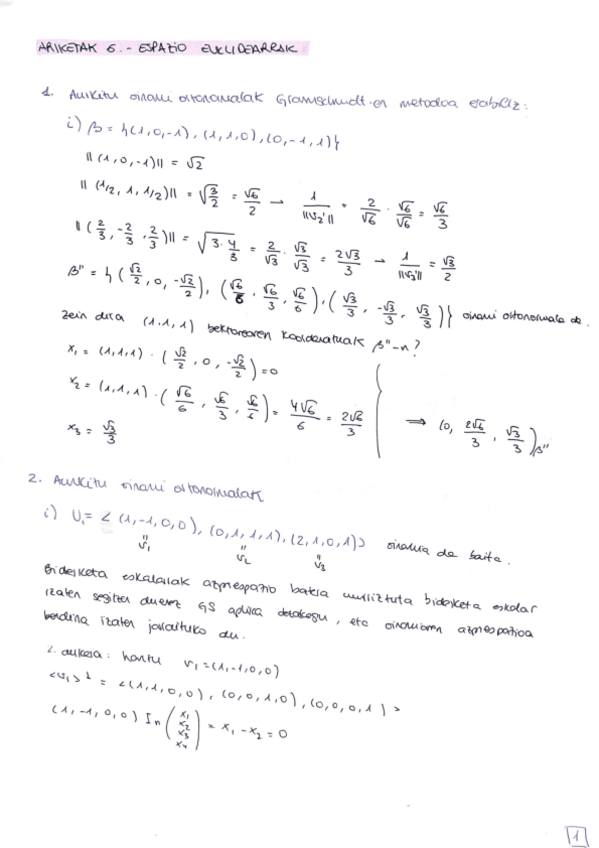 ARIKETAK 6.- ESPAZIO EUKLIDEARRAK
1. Aurkitu oinarri ortonormalak Gramschmidt-en metodoa erabiliz:
i) β = {(1,0,-1), (1,1,0), (0,-1,1)}
||(1,0,-1)|| = √2
||(1/2, 1, 1/2)|| = √(3/2) = √6/2 → 1/||v₂'|| = 2/√6 · √6/√6 = √6/3
||(2/3, -2/3, 2/3)|| = √(3·4/9) = 2/√3 · √3/√3 = 2√3/3 → 1/||v₃'|| = √3/2
β'' = {(√2/2, 0, -√2/2), (√6/6, √6/3, √6/6), (√3/3, -√3/3, √3/3)} oinarri ortonormala da.
Zein dira (1,1,1) bektorearen koordenatuak β''-n?
x₁ = (1,1,1) · (√2/2, 0, -√2/2) = 0
x₂ = (1,1,1) · (√6/6, √6/3, √6/6) = 4√6/6 = 2√6/3
x₃ = √3/3
⟹ (0, 2√6/3, √3/3)β''
2. Aurkitu oinarri ortonormalak
i) U₁ = < (1,-1,0,0), (0,1,1,1), (2,1,0,1) > oinarria da baita.
v₁ v₂ v₃
Biderketa eskalarrak azpiespazio batera murriztuta biderketa eskalar
izaten segitzen duenez GS aplika dezakegu, eta oinarriaren azpiespazioa
berdina izaten jarraituko du.
2. aukera: hartu v₁ = (1,-1,0,0)
<v₁>⊥ = <(1,1,0,0), (0,0,1,0), (0,0,0,1)>
(1,-1,0,0) In (x₁ x₂ x₃ x₄) = x₁ - x₂ = 0
1